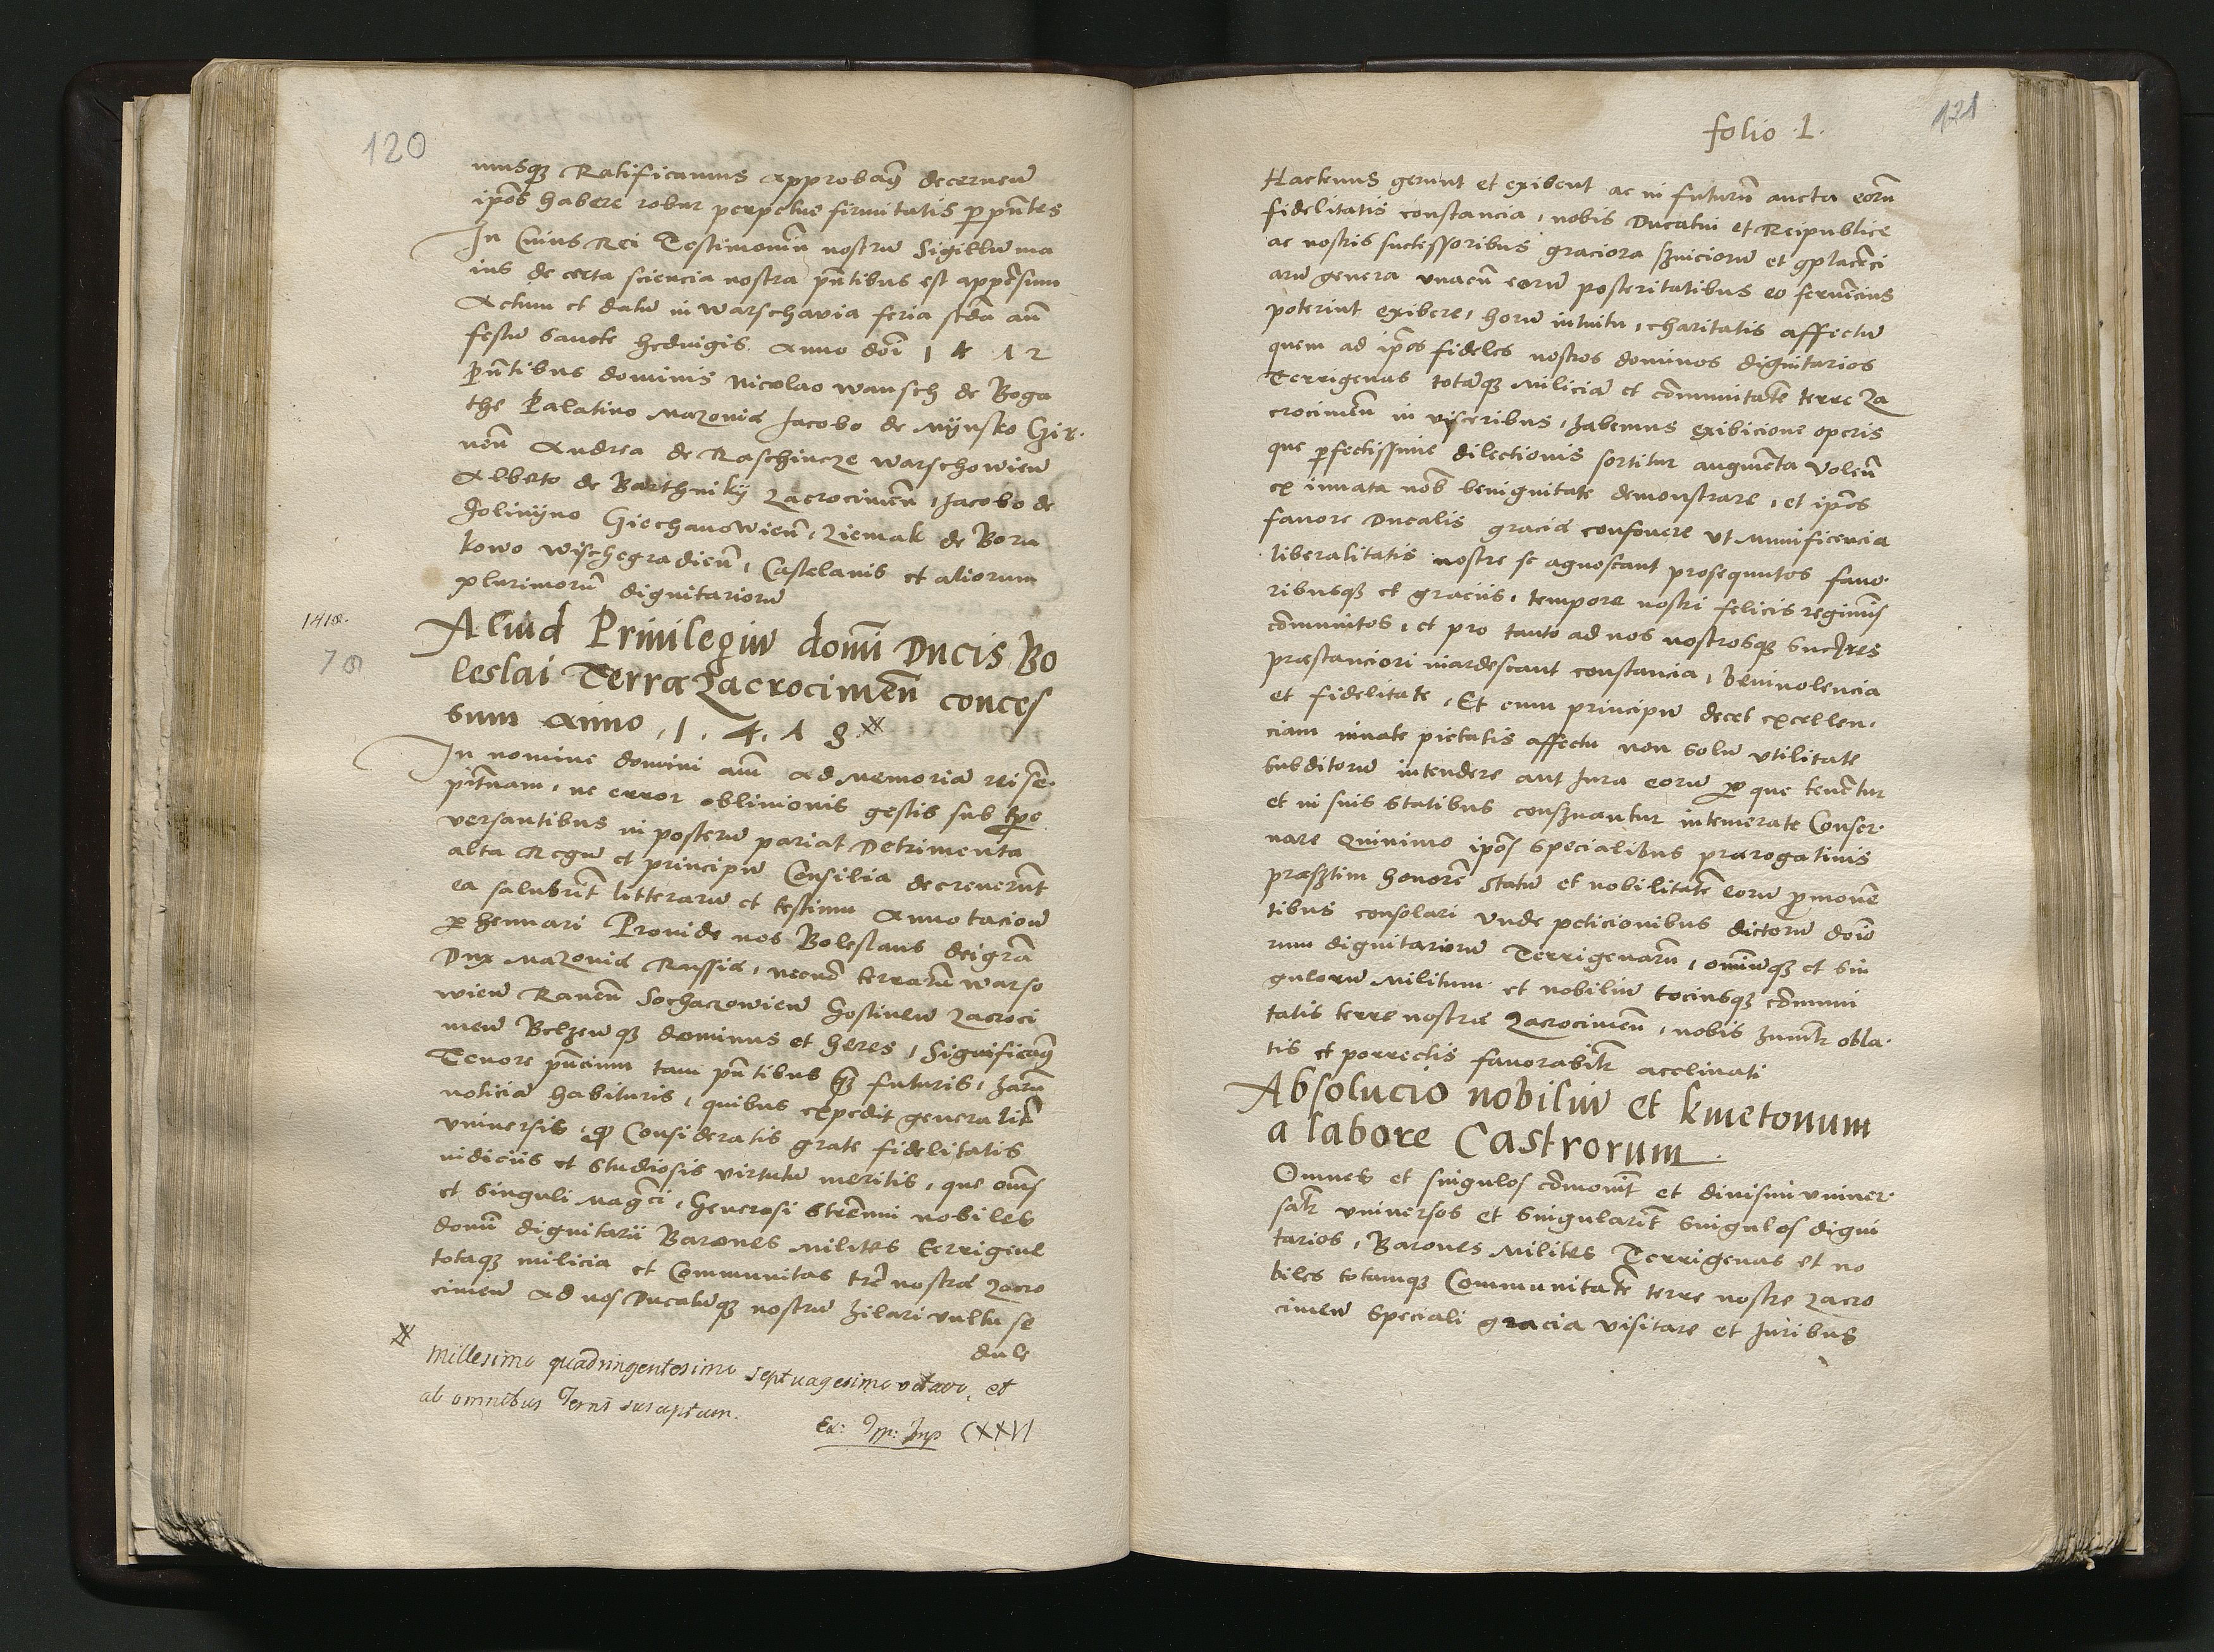 120
musqz Ratificamus approbamus decernen̄
ip̄os habere robur perpetue firmitatis p̱ pn̄tes
In Cuius Rei Testimoniū nostrū Sigillū ma
ius de certa sciencia nostra pn̄tibus est appēsum
Actum et datū in warschavia feria scd̄a an̄
festū Sancte hedvigis Anno dōi 1412
Pn̄tibus dominis Nicolao wansch de Boga
the Palatino Mazoviæ Jacobo de Mijnsko Cir.
nen̄ Andrea de Raschincze warschowien̄
Alberto de Barthnikij Zacrocimen̄, Jacobo de
Golinijno Ciechanowien̄, Ziemak de Boru
kowo wischegradien̄, Castelanis et aliorum
plurimorū dignitariorū
1418.
78
Aliud Privilegiū domī Ducis Bo
leslai Terræ Zacrocimēn conces
sum Anno, 1. 4. 1 8 ※
In nomine domini am̄ Ad Memoriā rei sē
pitnam, ne error oblivionis gestis sub tp̄e
versantibus in posterū pariat Detrimenta
alta Regū et principū Consilia decreverūt
ea salubrit̄ litterarū et testiū Annotacioū
p̱hennari Provide nos Boleslaus dei grā
Dux Mazoviæ Russiæ, necnō terrarū warso
wien̄ Raven̄ Sochaczowien̄ Gostinen̄ Zacroci
men̄ Belzen̄qz dominus et heres, Significamus
Tenore pn̄cium tam pn̄tibus q̄z futuris, harū
noticiā habituris, quibus expedit generalit̄
universis, qȝ Consideratis grate fidelitatis
indiciis et studiosis virtutū meritis, que om̄s
et singuli Magci, Generosi Strēnui nobiles
domī dignitarii Barones Milites terrigene
totaqz milicia et Communitas tre nostræ Zacro
cimen̄ Ad nos Ducatūqz nostrū hilari vultu se
dule
※ Millesimo quadringentesimo septuagesimo octavo, et
ab omnibus Terris susceptum.
Ex: Im: Imp CXXVI
121
folio 1.
Hactenus gerunt et exibent ac in futurū aucta eorū
fidelitatis constancia, nobis Ducatui et Reipublice
ac nostris successoribus graciora sȝviciorū et 9placēci
arū genera unacū eorū posteritatibus eo fervēcius
poterint exibere, horū intuitu, charitatis affectū
quem ad ip̄os fideles nostros dominos dignitarios
Terrigenas totāqz Miliciā et cōmunitatē terre Za
crocimēn in visceribus, habemus exibicione operis
que p̱fectissime dilectionis sortitur augmēta Volen̄
ex innata nob̄ benignitate demonstrare, et ip̄os
favore Ducalis graciæ confovere ut Munificencia
liberalitatis nostre se agnoscant prosequutos favo.
ribusqz et graciis, tempore nostri felicis regimīs
cōmunitos, et pro tanto ad nos nostrosqz succ̄res
præstanciori inardescant constancia, Benivolencia
et fidelitate, Et cum principū decet excellen.
ciam innate pietatis affectu non solū utilitate
Subditorū intendere aut Jura eorū p̱ que tenētur
et in suis statibus consȝvantur intemerate Conser.
vare Quinimo ip̄os specialibus prærogativis
præsȝtim honorē statū et nobilitatē eorū p̄movē
tibus consolari Unde peticionibus dictorū doīo
rum dignitariorū Terrigenarū, omīuqz et sin
gulorū Militum et nobiliū tociusqz cōmuni
tatis terre nostræ Zacrocimēn, nobis hūilr obla.
tis et porrectis favorabilr acclinati
Absolucio nobiliū et kmetonum
a labore Castrorum.
Omnes et singulos cōmonit̄ et divisim univer.
salr universos et Singularit̄ singulos digni
tarios, Barones Milites Terrigenas et no
biles totamqz Communitatē terre nostre Zacro
cimen̄ Speciali gracia visitare et Juribus